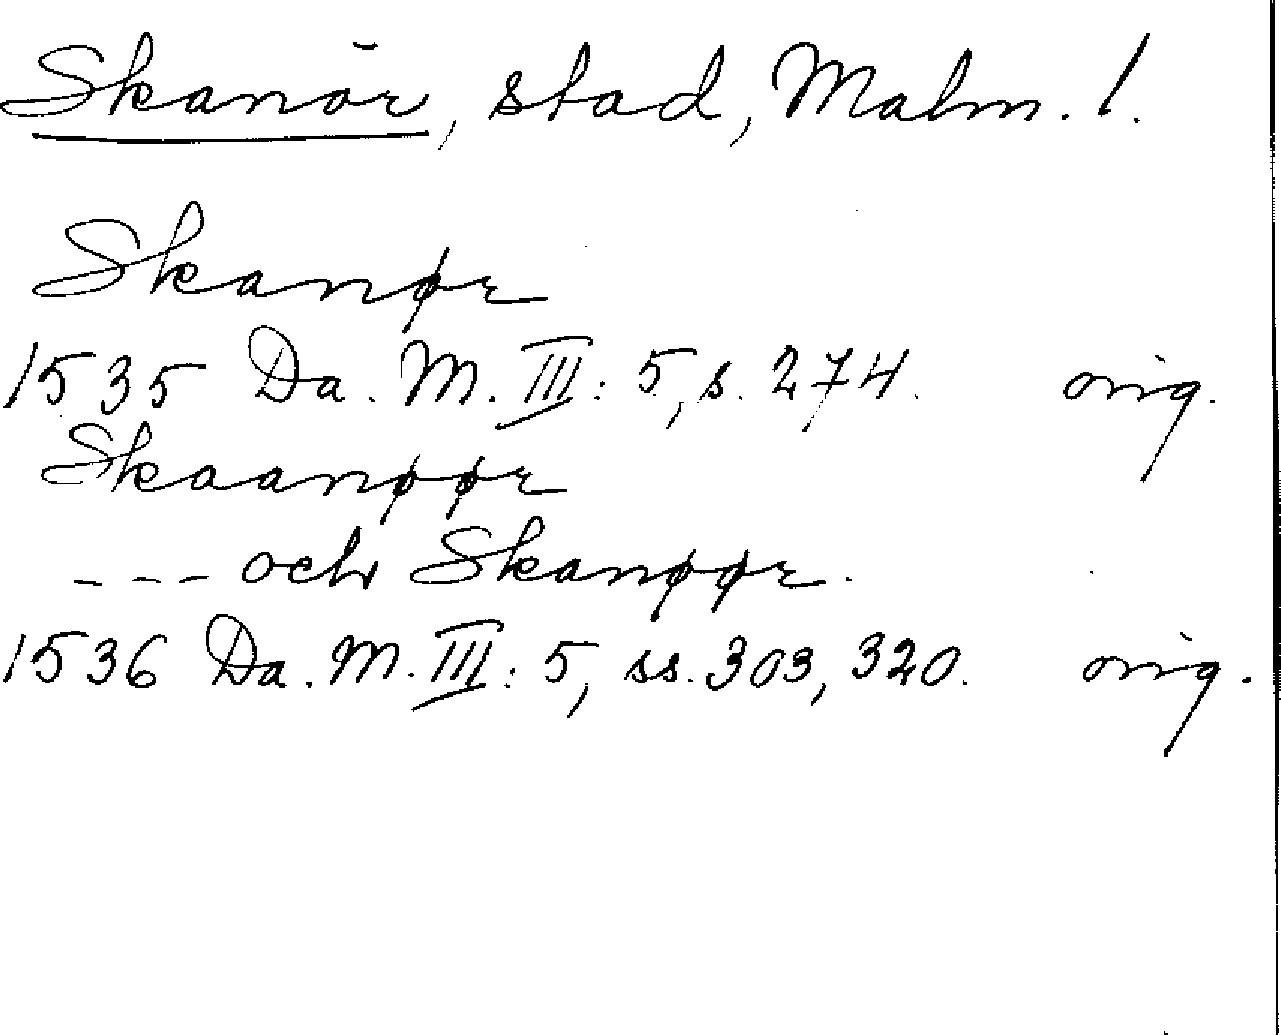 Skanör, stad, Malm. l.
Skanør
1535 Da. M. III: 5, s. 274. orig.
Skaanøør
--- och Skanøør.
1536 Da. M. III: 5, ss. 303, 320. orig.